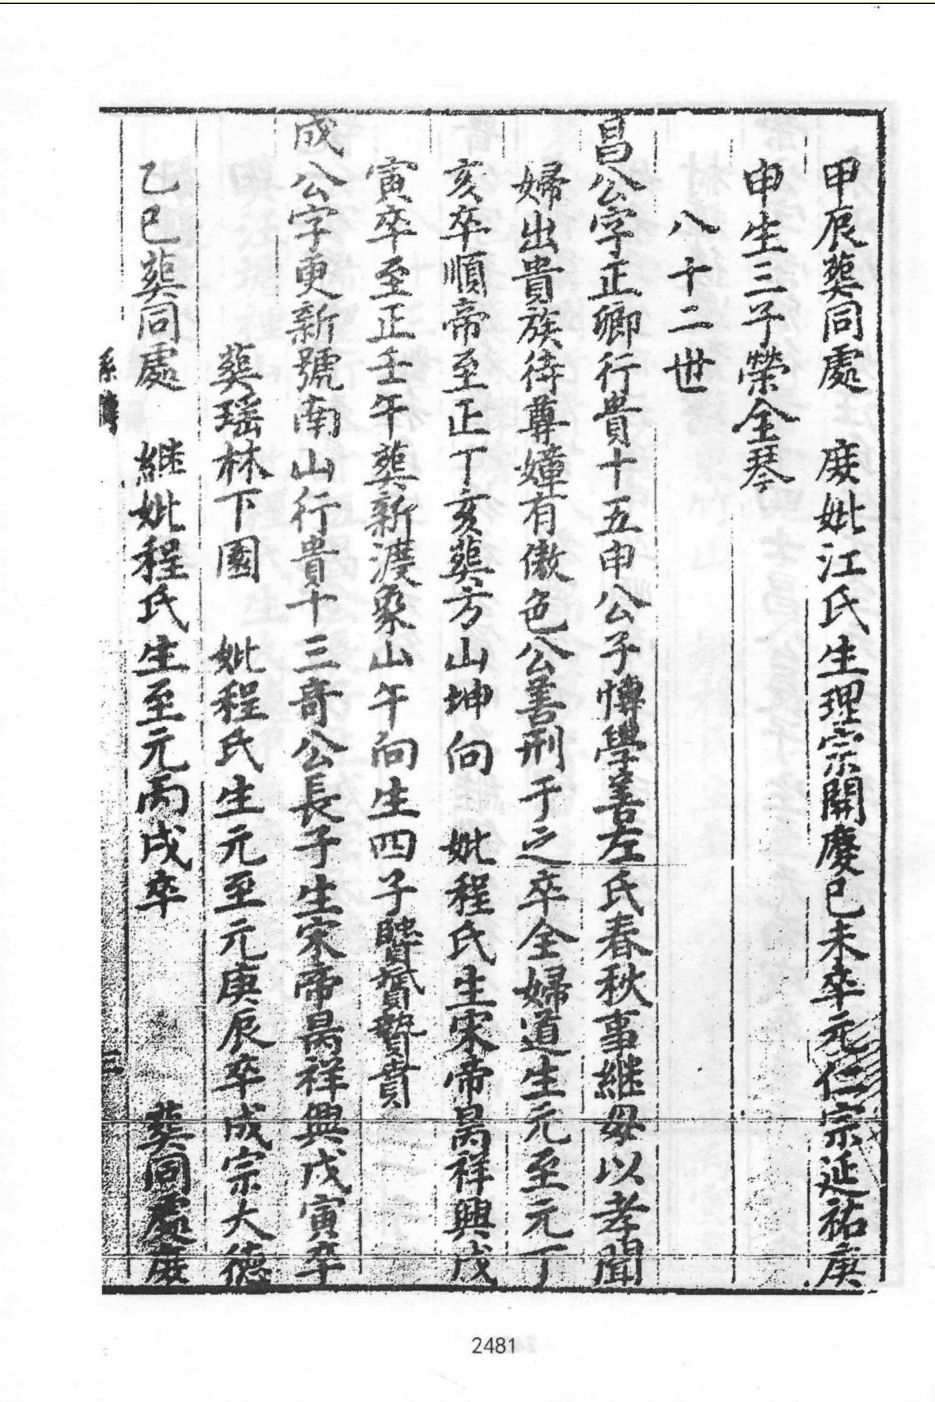 甲辰葬同處　庶妣江氏生理宗開慶已未卒元仁宗延祐庚
申生三子榮全琴
八十二世
昌公字正卿行貴十五申公子慱學善左氏春秋事継母以孝聞
婦出貴族待尊嫜有傲色公善刑于之卒全婦道生元至元丁
亥卒順帝至正丁亥葬方山坤向　妣程氏生宋帝昺祥興戊
寅卒至正壬午葬新渡桑山午向生四子贇贄貴
成公字更新號南山行貴十三奇公長子生宋帝昺祥興戊寅卒
葬瑶林下園　妣程氏生元至元庚辰卒成宗大德
乙巳葬同處　継妣程氏生至元丙戌卒　葬同處庶
系
二
2481